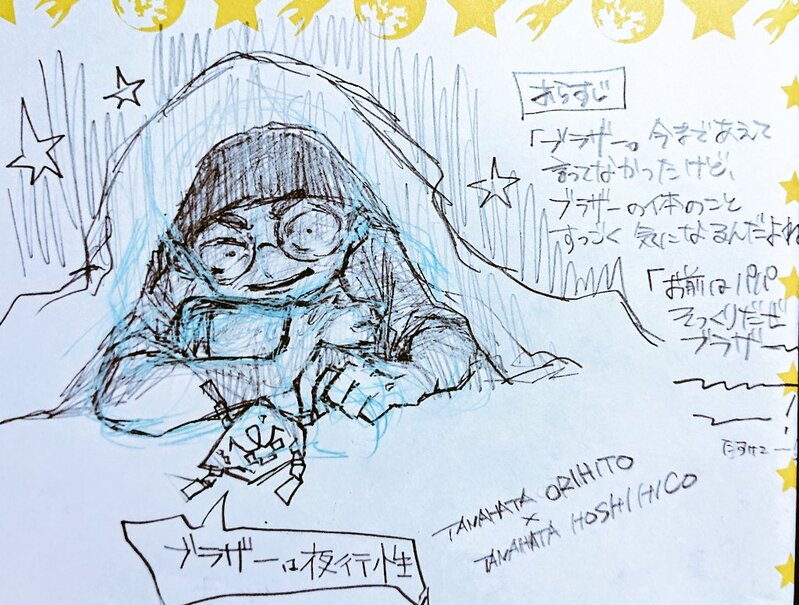 あらすじ
「ブラザー。今まであえて
言ってなかったけど、
ブラザーの体のこと
すっごく気になるんだよね
「お前はパパ
そっくりだぜ
ブラザー
ブラザーは夜行性
TANAHATA ORIHITO
×
TANAHATA HOSHIHICO